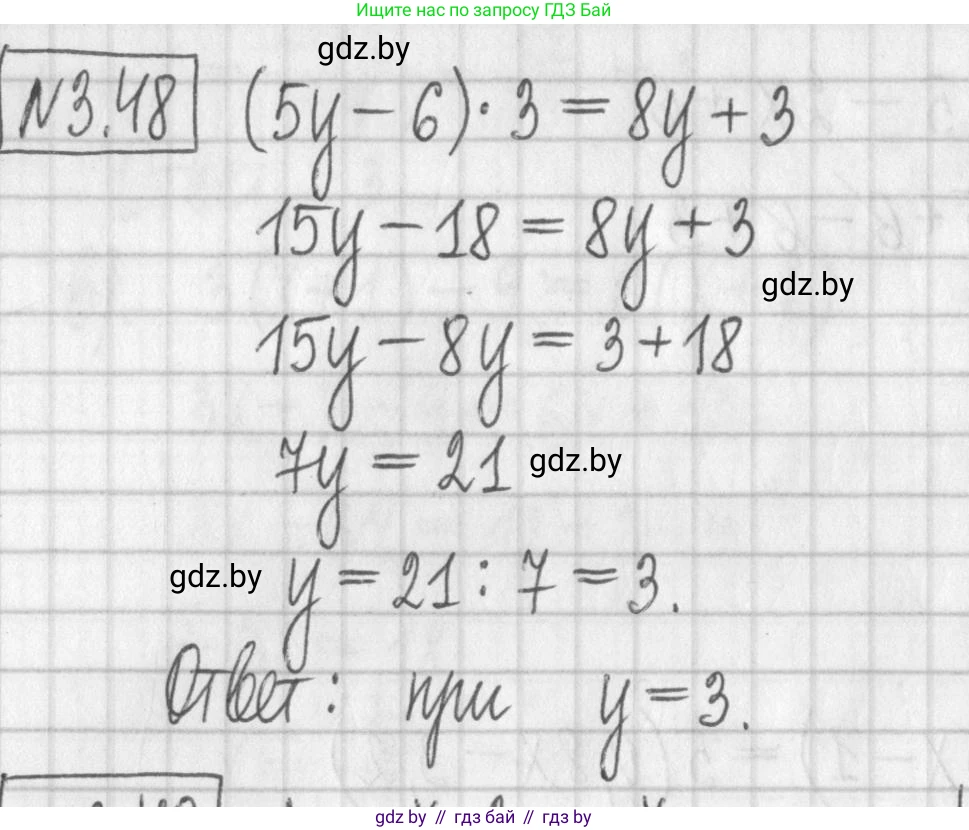 Ищите нас по запросу ГДЗ Бай
gdz.by
N3.48 (5y - 6) · 3 = 8y + 3
15y - 18 = 8y + 3
gdz.by
15y - 8y = 3 + 18
7y = 21 gdz.by
gdz.by y = 21 : 7 = 3.
Ответ: при y = 3.
gdz.by // гдз бай // gdz.by